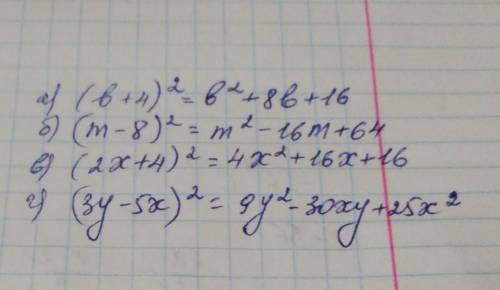 а) (b+4)² = b²+8b+16
б) (m-8)² = m²-16m+64
в) (2x+4)² = 4x²+16x+16
г) (3y-5x)² = 9y²-30xy+25x²